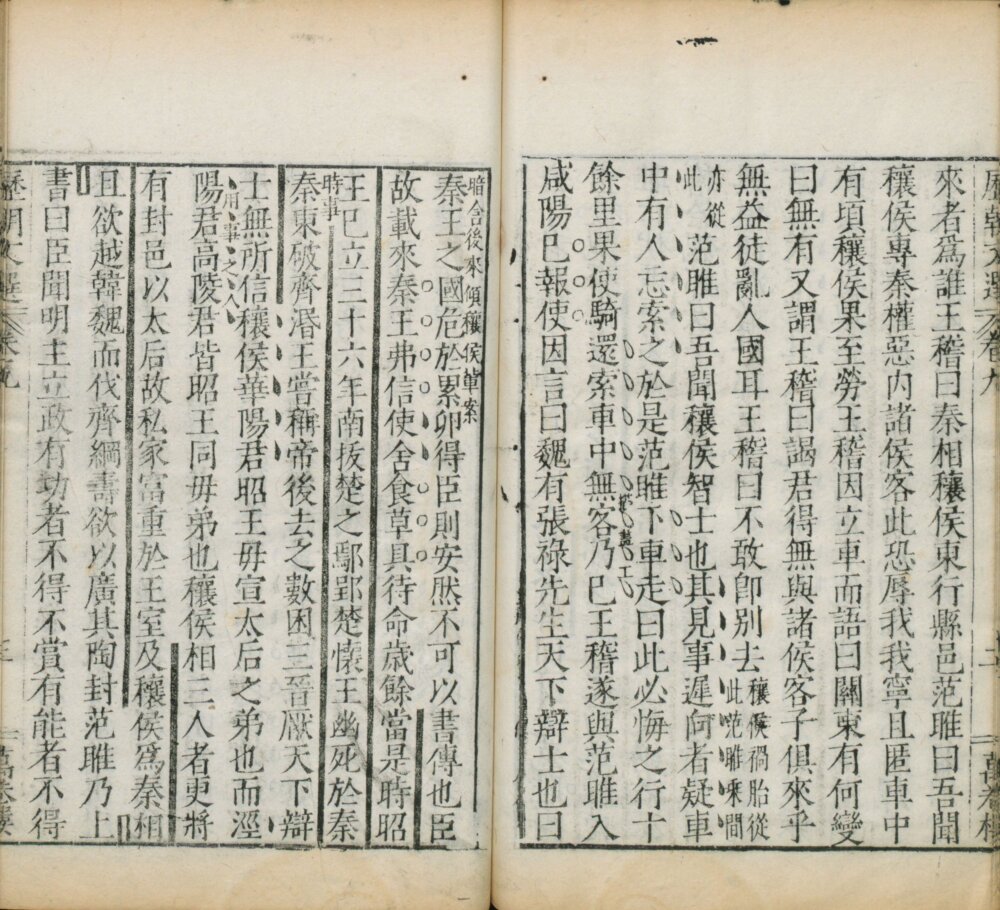 來者爲誰王稽曰秦相穰侯東行縣邑范睢曰吾聞
穰侯專秦權惡內諸侯客此恐辱我我寧且匿車中
有頃穰侯果至勞王稽因立車而語曰關東有何變
曰無有又謂王稽曰謁君得無與諸侯客子俱來乎
無益徒亂人國耳王稽曰不敢卽別去
穰侯禍胎從
此范睢乘間
亦從
此
范睢曰吾聞穰侯智士也其見事遲向者疑車
中有人忘索之於是范睢下車走曰此必悔之行十
餘里果使騎還索車中無客乃已王稽遂與范睢入
咸陽已報使因言曰魏有張祿先生天下辯士也曰
暗含後來傾穰侯
案
秦王之國危於累卵得臣則安然不可以書傳也臣
故載來秦王弗信使舍食草具待命歲餘當是時昭
王已立三十六年南拔楚之鄢郢楚懷王幽死於秦
時事
秦東破齊湣王嘗稱帝後去之數困三晉厭天下辯
士無所信穰侯華陽君昭王母宣太后之弟也而涇
用事之人
陽君高陵君皆昭王同母弟也穰侯相三人者更將
有封邑以太后故私家富重於王室及穰侯爲秦相
且欲越韓魏而伐齊綱壽欲以廣其陶封范睢乃上
書曰臣聞明主立政有功者不得不賞有能者不得